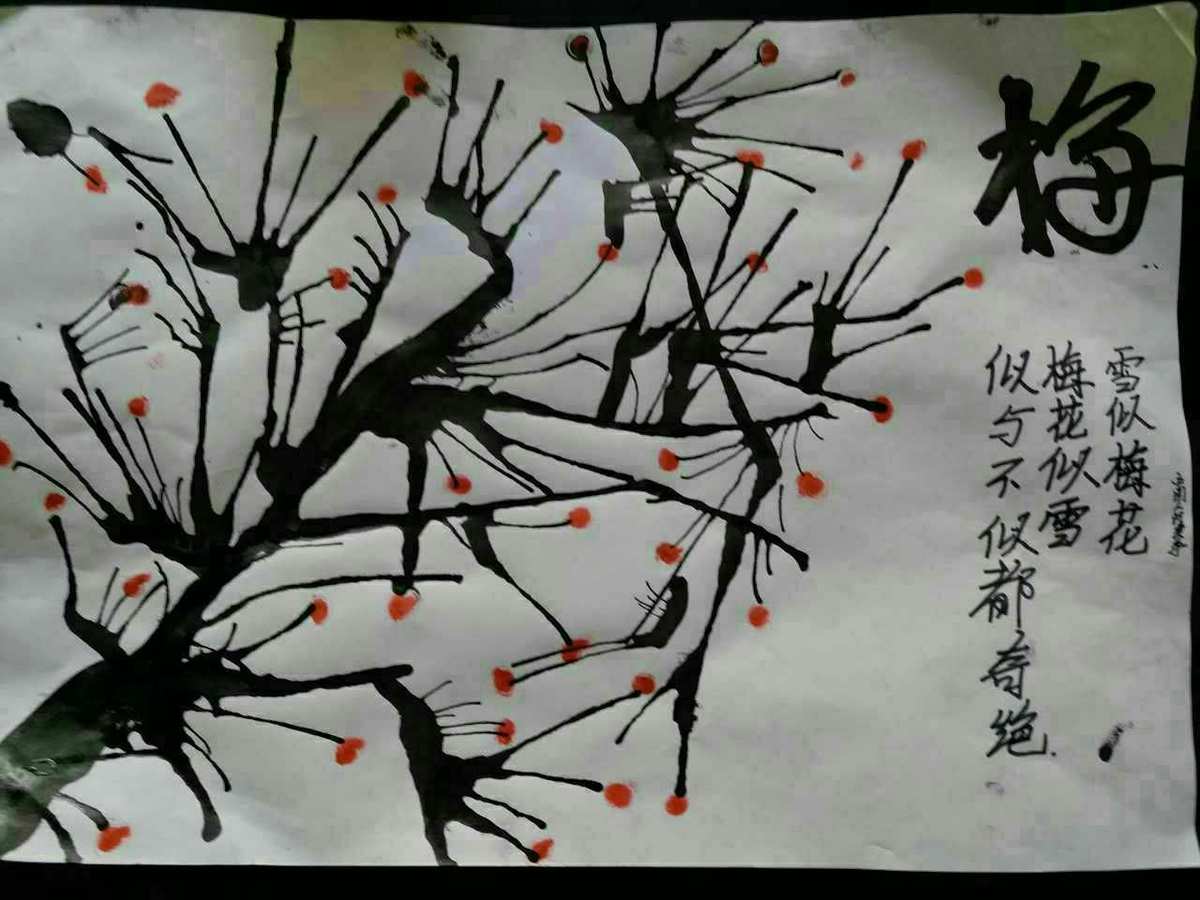 梅
雪似梅花
梅花似雪
似与不似都奇绝